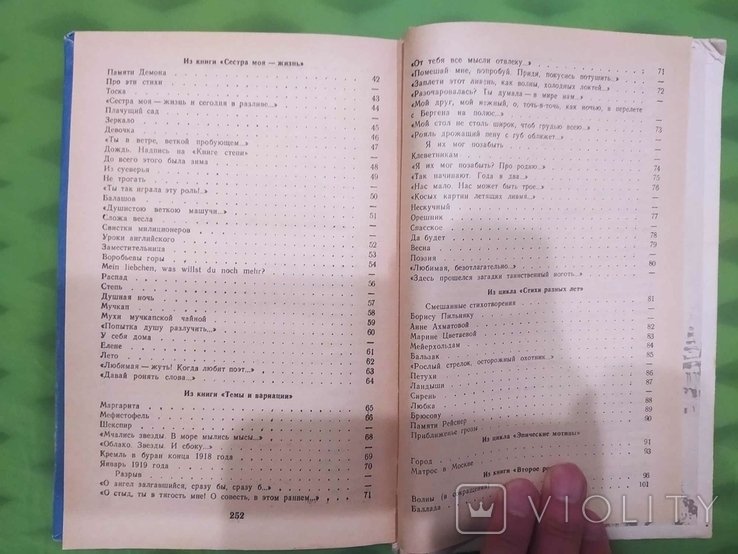 Из книги «Сестра моя — жизнь»
Памяти Демона 42
Про эти стихи —
Тоска 43
«Сестра моя — жизнь и сегодня в разливе...» 43
Плачущий сад 44
Зеркало —
Девочка 45
«Ты в ветре, веткой пробующем...» 46
Дождь. Надпись на «Книге степи» 47
До всего этого была зима —
Из суеверья 48
Не трогать 49
«Ты так играла эту роль!..» —
Балашов 50
«Душистою веткою машучи...» —
Сложа весла 51
Свистки милиционеров —
Уроки английского 52
Заместительница 53
Воробьевы горы 54
Mein liebchen, was willst du noch mehr?
Распад 56
Степь —
Душная ночь 57
Мучкап 58
Мухи мучкапской чайной 59
«Попытка душу разлучить...» 60
У себя дома —
Елене 61
Лето 62
«Любимая — жуть! Когда любит поэт...» 63
«Давай ронять слова...» 64
Из книги «Темы и вариации»
Маргарита 65
Мефистофель 66
Шекспир —
«Мчались звезды. В море мылись мысы...» 68
«Облако. Звезды. И сбоку...» —
Кремль в буран конца 1918 года 69
Январь 1919 года 70
Разрыв
«О ангел залгавшийся, сразу бы, сразу б...» —
«О стыд, ты в тягость мне! О совесть, в этом раннем...» 71
252
«От тебя все мысли отвлеку...» 71
«Помешай мне, попробуй. Приди, покусись потушить...» —
«Заплети этот ливень, как волны, холодных локтей...» 72
«Разочаровалась? Ты думала — в мире нам...» —
«Мой друг, мой нежный, о, точь-в-точь, как ночью, в перелете
с Бергена на полюс...»
«Мой стол не столь широк, чтоб грудью всею...» 73
«Рояль дрожащий пену с губ оближет...» —
Я их мог позабыть
Клеветникам 74
«Я их мог забыть? Про родню...» 75
«Так начинают. Года в два...» 76
«Нас мало. Нас может быть трое...» —
«Косых картин летящих ливмя...» —
Нескучный 77
Орешник —
Спасское 78
Да будет 79
Весна —
Поэзия 80
«Любимая, безотлагательно...» —
«Здесь прошелся загадки таинственный ноготь...»
Из цикла «Стихи разных лет»
Смешанные стихотворения
Борису Пильняку 81
Анне Ахматовой —
Марине Цветаевой 82
Мейерхольдам 83
Бальзак 84
«Рослый стрелок, осторожный охотник...» 85
Петухи 86
Ландыши —
Сирень 87
Любка 88
Брюсову 89
Памяти Рейснер 90
Приближенье грозы —
Из цикла «Эпические мотивы»
Город 91
Матрос в Москве 93
Из книги «Второе
Волны (в сокращении) 96
Баллада 101
VIOLITY